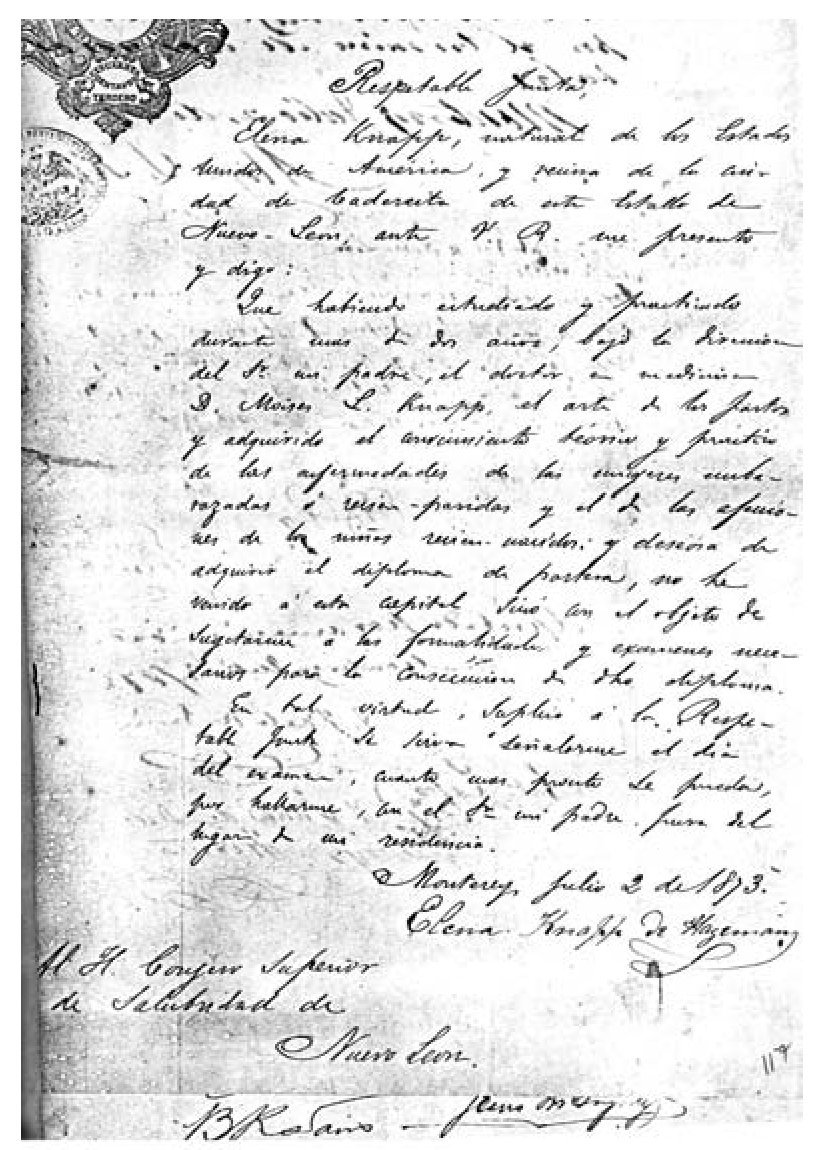 Respetable Junta,
Elena Knapp, natural de los Estados
Unidos de America, y vecina de la ciu-
dad de Cadereita de este Estado de
Nuevo-Leon, ante V. R. me presento
y digo:
Que habiendo estudiado y practicado
durante mas de dos años, bajo la direccion
del Sr. mi padre, el doctor en medicina
D. Moises L. Knapp, el arte de los partos
y adquirido el conocimiento teorico y practico
de las enfermedades de las mugeres emba-
razadas ó recien-paridas y el de las afeccio-
nes de los niños recien-nacidos; y deseosa de
adquirir el diploma de partera, no he
venido á esta capital sinó con el objeto de
sugetarme á las formalidades y examenes nece-
sarios para la consecucion de dho diploma.
En tal virtud, suplico á la Respe-
table Junta se sirva señalarme el dia
del examen, cuanto mas pronto se pueda,
por hallarme, con el Sr. mi padre fuera del
lugar de mi residencia.
Monterey, Julio 2 de 1873.
Elena Knapp de Hageman
Al H. Consejo Superior
de Salubridad de
Nuevo Leon.